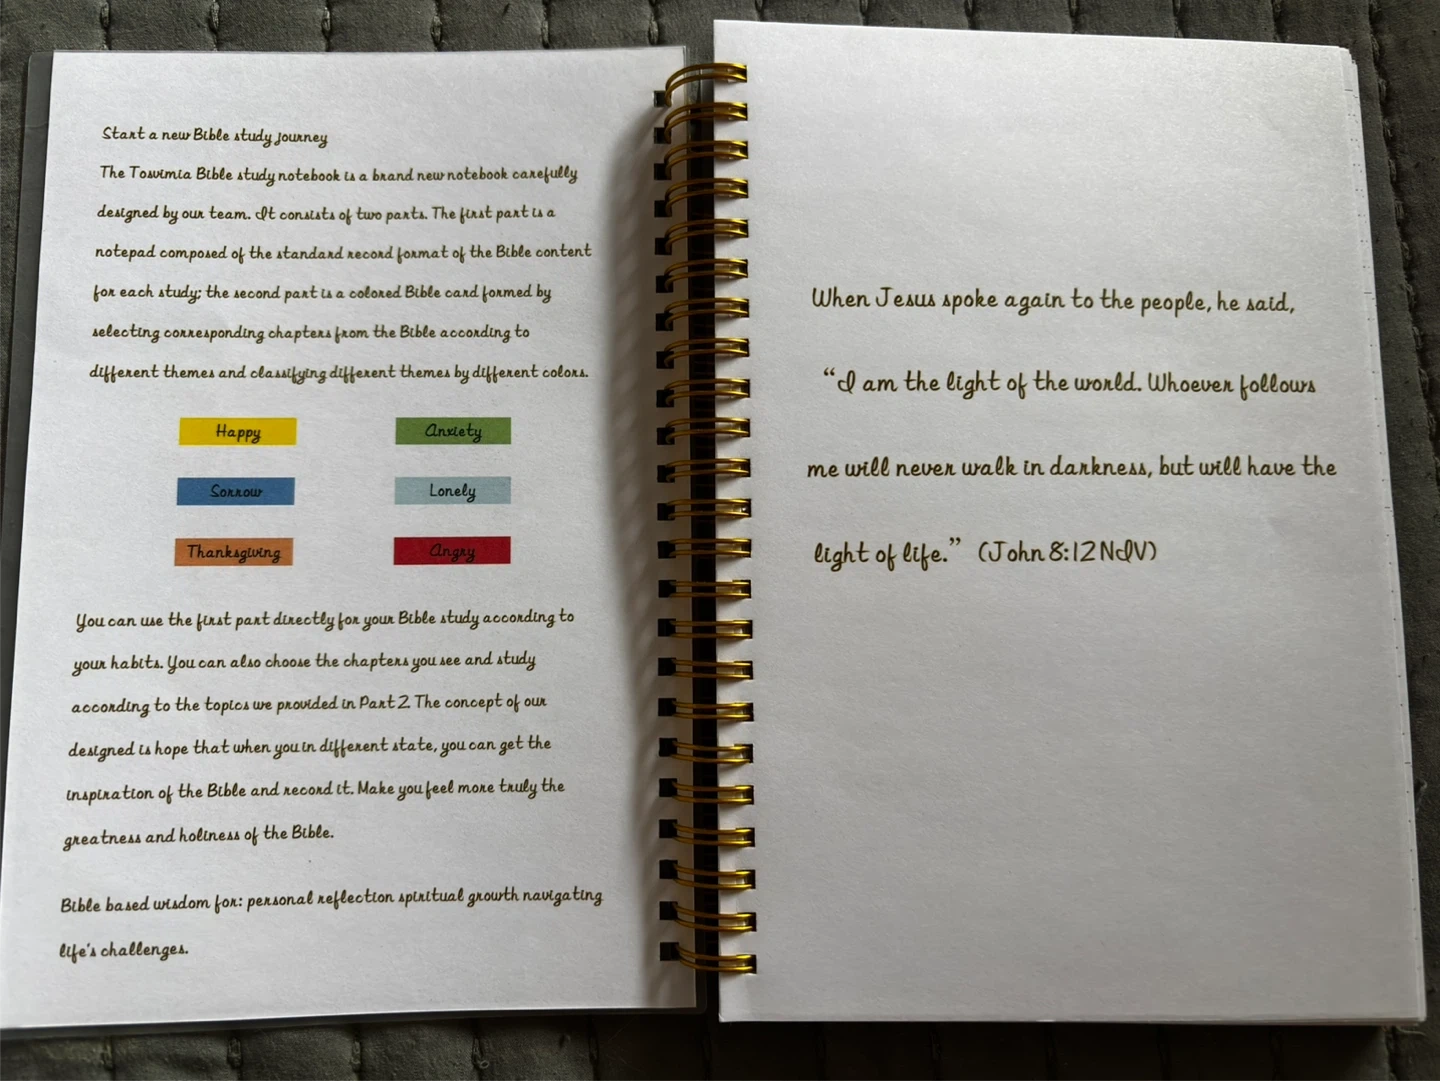 Start a new Bible study journey
The Tosvimia Bible study notebook is a brand new notebook carefully
designed by our team. It consists of two parts. The first part is a
notepad composed of the standard record format of the Bible content
for each study; the second part is a colored Bible card formed by
selecting corresponding chapters from the Bible according to
different themes and classifying different themes by different colors.
Happy
Anxiety
Sorrow
Lonely
Thanksgiving
Angry
You can use the first part directly for your Bible study according to
your habits. You can also choose the chapters you see and study
according to the topics we provided in Part 2. The concept of our
designed is hope that when you in different state, you can get the
inspiration of the Bible and record it. Make you feel more truly the
greatness and holiness of the Bible.
Bible based wisdom for: personal reflection spiritual growth navigating
life's challenges.
When Jesus spoke again to the people, he said,
“I am the light of the world. Whoever follows
me will never walk in darkness, but will have the
light of life.” (John 8:12 NIV)